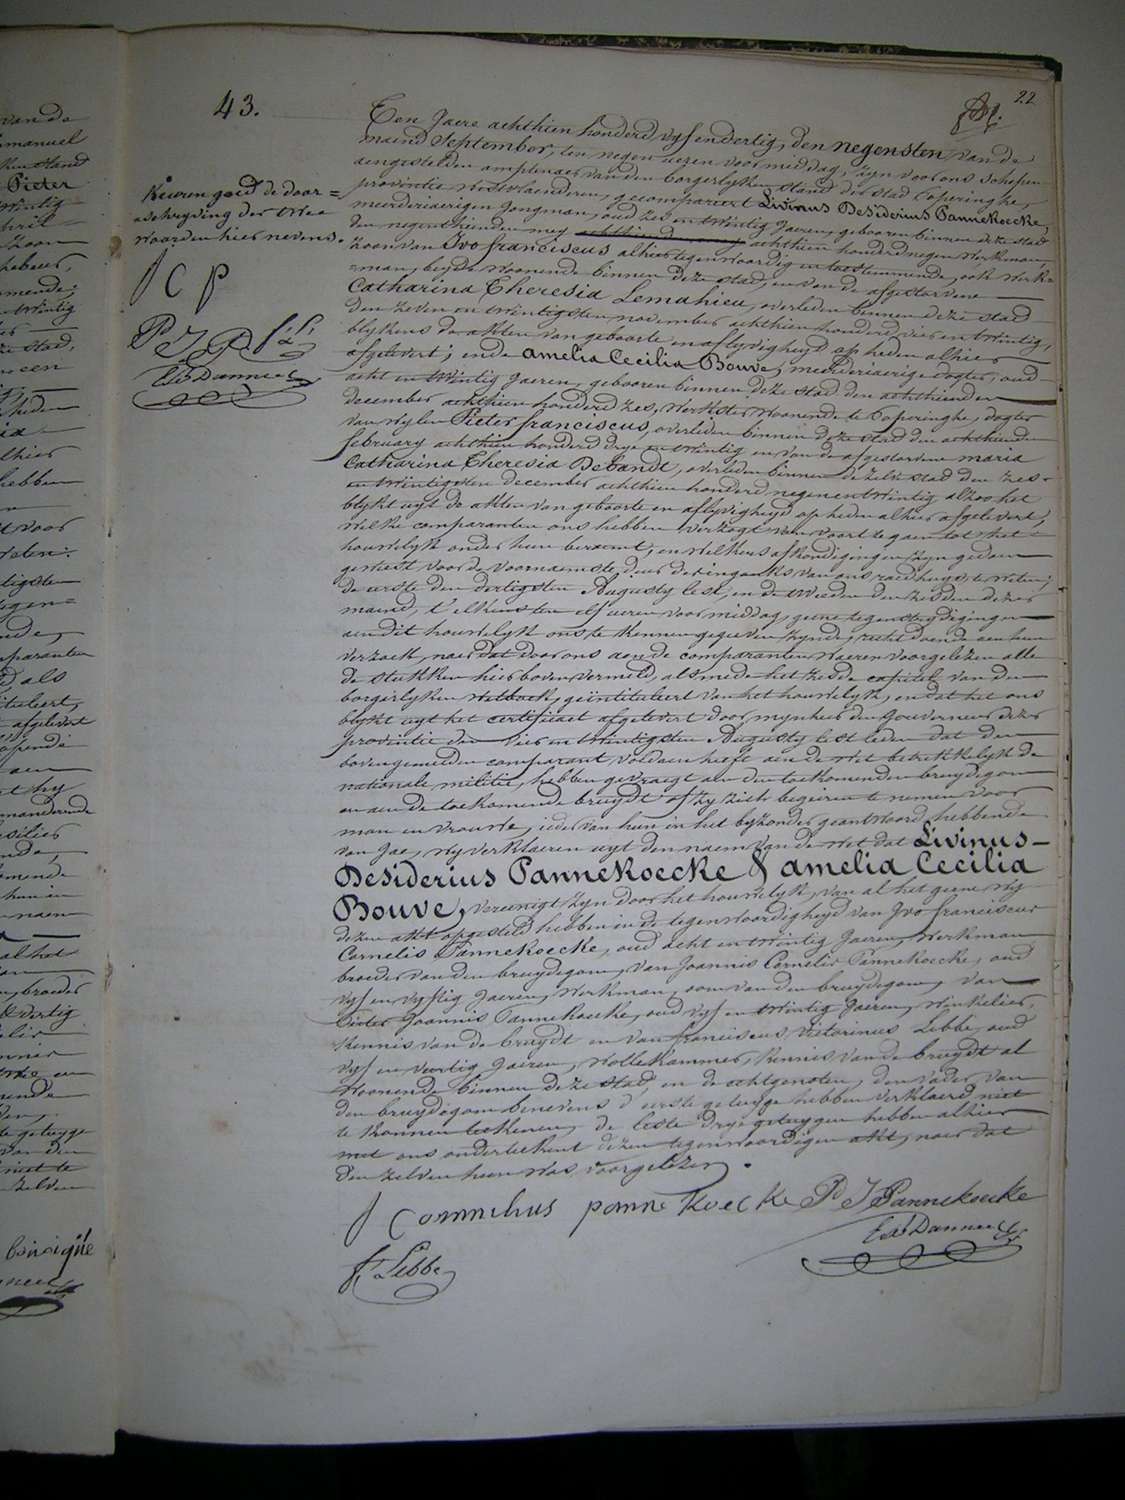 43.
22
Keuren goed de door=
ashreyding der twee
woorden hier nevens.
J C P
P J P f: L:
Eds Danneel
Ten Jaere achthien honderd vyf en dertig, den negensten van de
maend September, ten negen ueren voor middag, zyn voor ons Schepen
aengestelden amptenaer van den borgerlyken stand der stad Poperinghe,
provintie Westvlaenderen, gecompareert Livinus Desiderius Pannekoecke,
meerderjaerigen Jongman, oud zes en twintig Jaeren, gebooren binnen deze stad
den negenthienden mey achthien honderd negen, werkman,
zoon van Ivo franciscus alhier tegenwoordig en toestemmende, ook werk=
=man, beyde woonende binnen deze stad, en van de afgestorvene
Catharina Theresia Lemahieu, overleden binnen deze stad
den zeven en twintigsten november achthien honderd vier en twintig,
blykens de akten van geboorte en aflyvigheyd op heden alhier
afgelevert; ende amelia Cecilia Bouve, meerderjaerige dogter, oud
acht en twintig Jaeren, gebooren binnen deze stad den achthienden
december achthien honderd zes, werkster woonende te Poperinghe, dogter
van wylen Pieter franciscus, overleden binnen deze stad den achthienden
february achthien honderd drye en twintig en van de afgestorvene maria
Catharina Theresia Debandt, overleden binnen dezelve stad den zes-
en twintigsten december achthien honderd negen en twintig alzoo het
blykt uyt de akten van geboorte en aflyvigheyd op heden alhier afgelevert,
welke comparanten ons hebben verzogt van voort te gaen tot het
houwelyk onder hun beraemt, en welkers afkondigingen zyn gedaen
geweest voor de voornaemste deur der ingank van ons raedhuys, te weten;
de eerste den dertigsten Augusty lest, en de tweede den zesden dezer
maend, t'elkens ten elf ueren voor middag, geene tegenstrydigingen
aen dit houwelyk ons te kennen gegeeven zynde, recht doende aen hun
verzoek, naer dat door ons aen de comparanten waeren voorgelezen alle
de stukken hier boven vermeld, alsmede het zesde capitel van den
borgerlyken wetboek, geïntituleert van het houwelyk, en dat het ons
blykt uyt het certificaet afgelevert door mynheer den Gouverneur dezer
provintie den vier en twintigsten Augusty lest leden dat den
bovengemelden comparant voldaen heeft aen de wet betrekkelyk de
nationale militie, hebben gevraegt aen den toekomenden bruydegom
en aen de toekomende bruydt of zy zich begeiren te nemen voor
man en vrouwe, ieder van hun in het byzonder geantwoord hebbende
van Jae, wy verklaeren uyt den naem van de wet dat Livinus-
Desiderius Pannekoecke & amelia Cecilia
Bouve, vereenigt zyn door het houwelyk, van al het geene wy
dezen akt opgesteld hebben in de tegenwoordigheyd van Ivo franciscus
Cornelis Pannekoecke, oud acht en twintig Jaeren, werkman
broeder van den bruydegom, van Joannis Cornelis Pannekoecke, oud
vyf en vyftig Jaeren, werkman, oom van den bruydegom, van
Pieter Joannis Pannekoecke, oud vyf en twintig Jaeren, winkelier,
kennis van de bruydt en van franciscus victorinus Lebbe, oud
vyf en veertig Jaeren, wollekammer, kennis van de bruydt al
woonende binnen deze stad, en de echtgenoten, den vader van
den bruydegom benevens d'eerste getuyge hebben verklaerd niet
te konnen teekenen, de leste drye getuygen hebben alhier
met ons onderteekent dezen tegenwoordigen akt, naer dat
den zelven hun was voorgelezen.
J Cornnelius panne koecke P J Pannekoecke
Eds Danneel
f. Lebbe